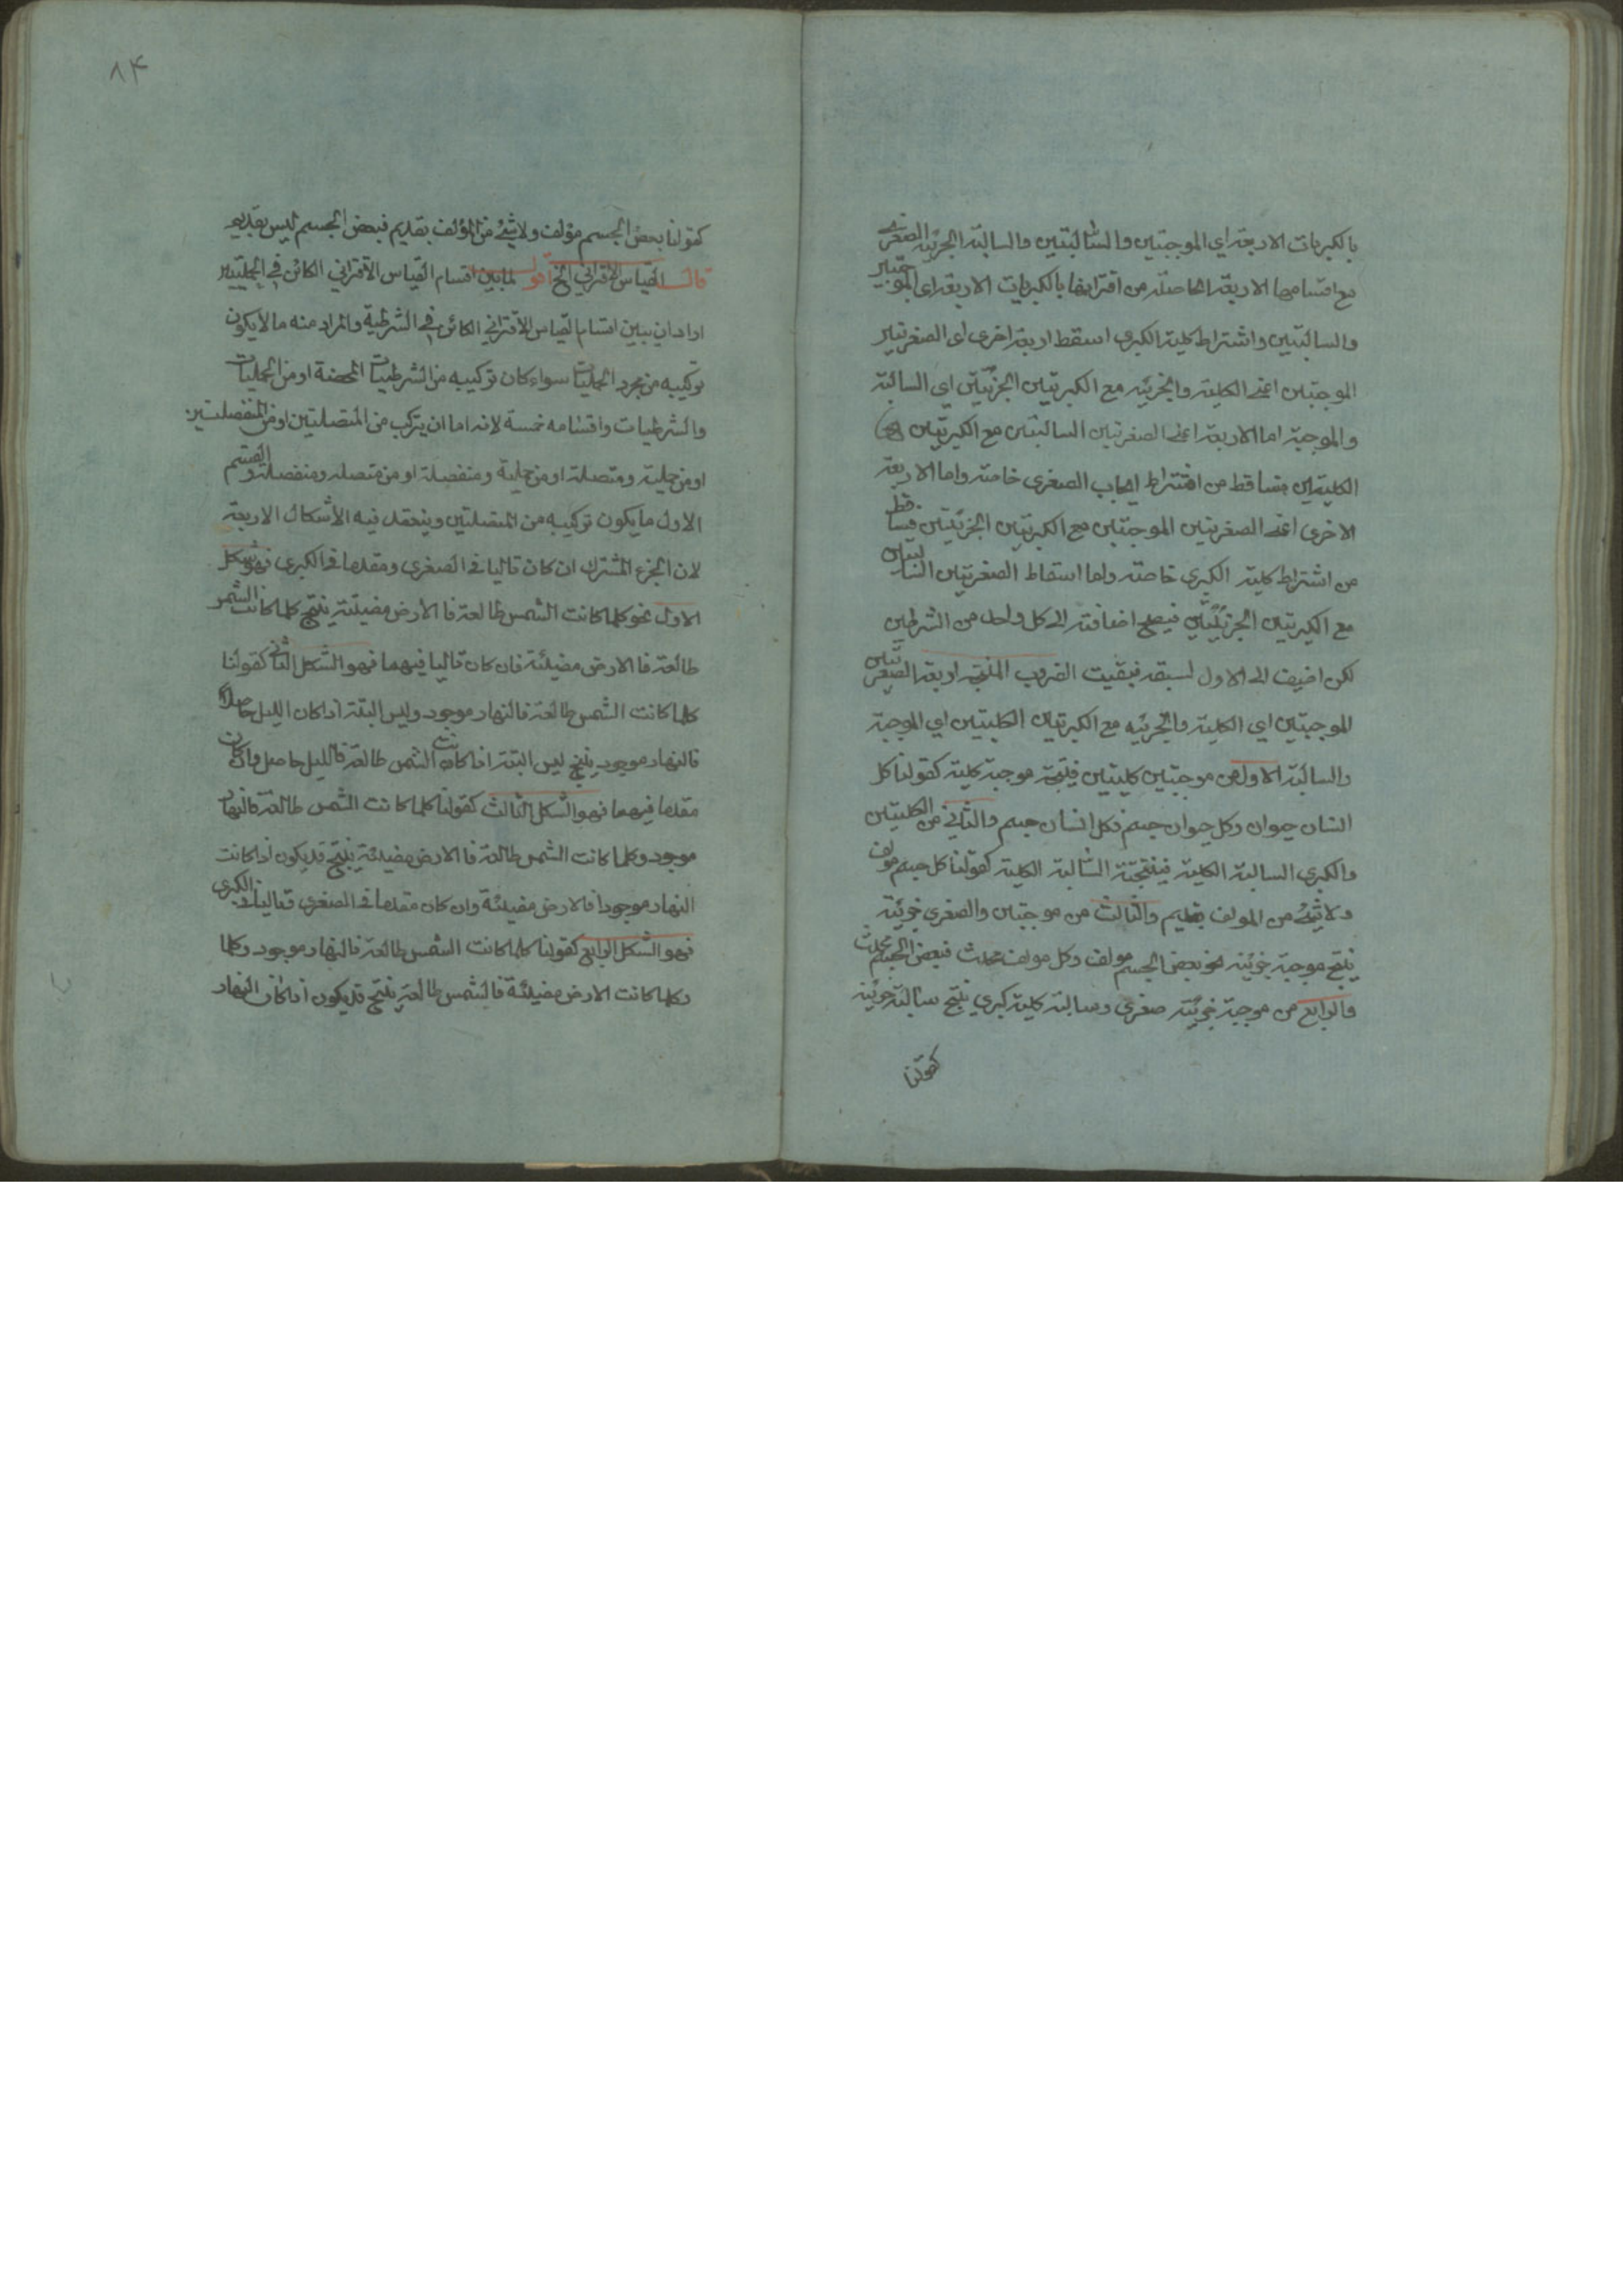 بالكبريات الاربعة اي الموجبتين والسالبتين والسالبة الجزئية الصغرى
مع اقسامها الاربعة الحاصلة من اقترانها بالكبريات الاربعة اي الموجبتين
والسالبتين واشتراط كلية الكبرى اسقط اربعة اخرى اي الصغرتين
الموجبتين اعنى الكلية والجزئية مع الكبرتين الجزئيتين اي السالبة
والموجبة اما الاربعة اعنى الصغرتين السالبتين مع الكبرتين
الكليتين فتساقط من اشتراط ايجاب الصغرى خاصة واما الاربعة
الاخرى اعنى الصغريتين الموجبتين مع الكبريتين الجزئيتين فتساقط
من اشتراط كلية الكبرى خاصة واما اسقاط الصغرتين السالبتين
مع الكبرتين الجزئيتين فيصح اضافته الى كل واحد من الشرطين
لكن اضيف الى الاول لسبقه فبقيت الضروب المنتجة اربعة الصغرتين
الموجبتين اي الكلية والجزئيه مع الكبرتين الكليتين اي الموجبة
والسالبة الاول من موجبتين كليتين فينتج موجبة كلية كقولنا كل
انسان حيوان وكل حيوان جسم فكل انسان جسم والثاني من الكليتين
والكبرى السالبة الكلية فينتجته السالبة الكلية كقولنا كل جسم مولف
ولا شئ من المولف بقديم والثالث من موجبتين والصغرى جزئية
ينتج موجبة جزئية نحو بعض الجسم مولف وكل مولف محدث فبعض الجسم محدث
والرابع من موجبة جزئية صغرى وسالبة كلية كبرى ينتج سالبة جزئية
كقولنا
٨۴
كقولنا بعض الجسم مؤلف ولا شئ من المؤلف بقديم فبعض الجسم ليس بقديم
قال القياس الاقتراني الخ اقول لما بين اقسام القياس الاقتراني الكائن في الحمليتين
اراد ان يبين اقسام القياس الاقتراني الكائن في الشرطية والمراد منه ما لا يكون
تركيبه من مجرد الحمليات سواء كان تركيبه من الشرطيات المحضة او من الحمليات
والشرطيات واقسامه خمسة لانه اما ان يتركب من المتصلتين او من المنفصلتين
او من حملية ومتصلة او من حملية ومنفصلة او من متصله ومنفصلة والقسم
الاول ما يكون تركيبه من المتصلتين وينعقد فيه الأشكال الاربعة
لان الجزء المشترك ان كان تاليا في الصغرى ومقدما في الكبرى فهو شكل
الاول نحو كلما كانت الشمس طالعة فالارض مضيئة ينتج كلما كانت الشمس
طالعة فالارض مضيئة فان كان تاليا فيهما فهو الشكل الثاني كقولنا
كلما كانت الشمس طالعة فالنهار موجود وليس البتة اذا كان الليل حاصلا
فالنهار موجود ينتج ليس البتة اذا كانت الشمس طالعة فالليل حاصل وان كان
مقدما فيهما فهو الشكل الثالث كقولنا كلما كانت الشمس طالعة فالنهار
موجود وكلما كانت الشمس طالعة فالارض مضيئة ينتج قد يكون اذا كانت
النهار موجودا فالارض مضيئة وان كان مقدما في الصغرى تاليا في الكبرى
فهو الشكل الرابع كقولنا كلما كانت الشمس طالعة فالنهار موجود وكلما
وكلما كانت الارض مضيئة فالشمس طالعة ينتج قد يكون اذا كان النهار